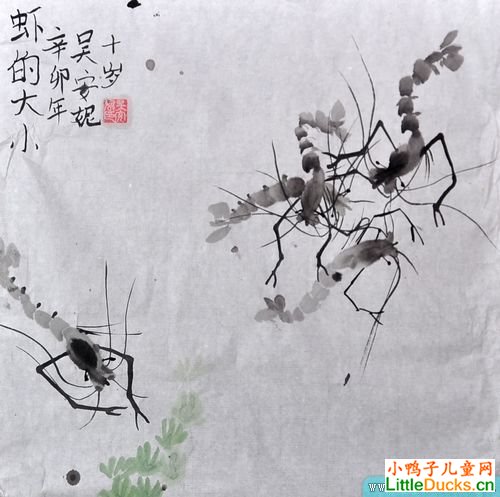 虾的大小
辛卯年
吴安妮
十岁
小鸭子儿童网
LittleDucks.cn